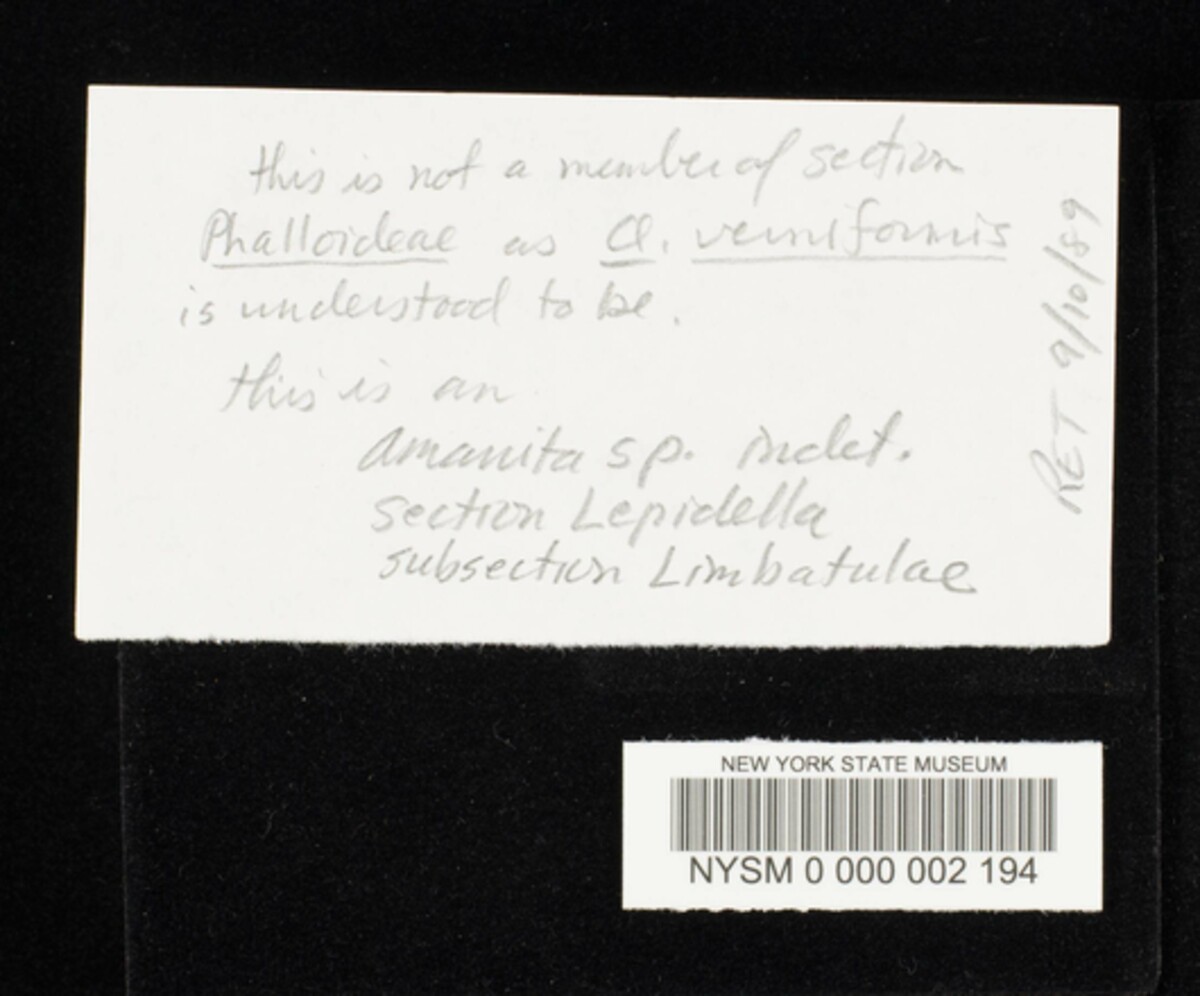 this is not a member of section
Phalloideae as A. verniformis
is understood to be.
this is an
amanita sp. indet.
section Lepidella
subsection Limbatulae
RET 9/10/89
NEW YORK STATE MUSEUM
NYSM 0 000 002 194